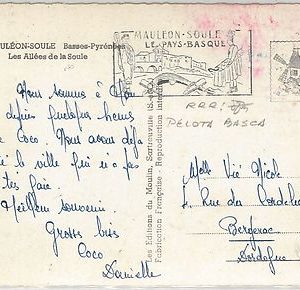 MAULÉON-SOULE Basses-Pyrénées
Les Allées de la Soule
MAULÉON-SOULE
LE PAYS-BASQUE
RRR!
PELOTA BASCA
Nous sommes à
depuis quelques heures
Coco Nous avons déjà
la ville qui n'a pas
très gaie
Meilleur souvenir
Grosses bises
Coco
Danielle
Les Editions du Moulin, Sartrouville (S.
Fabrication Française - Reproduction Interdite
Melle Nicole
Rue des Cordeliers
Bergerac
Dordogne